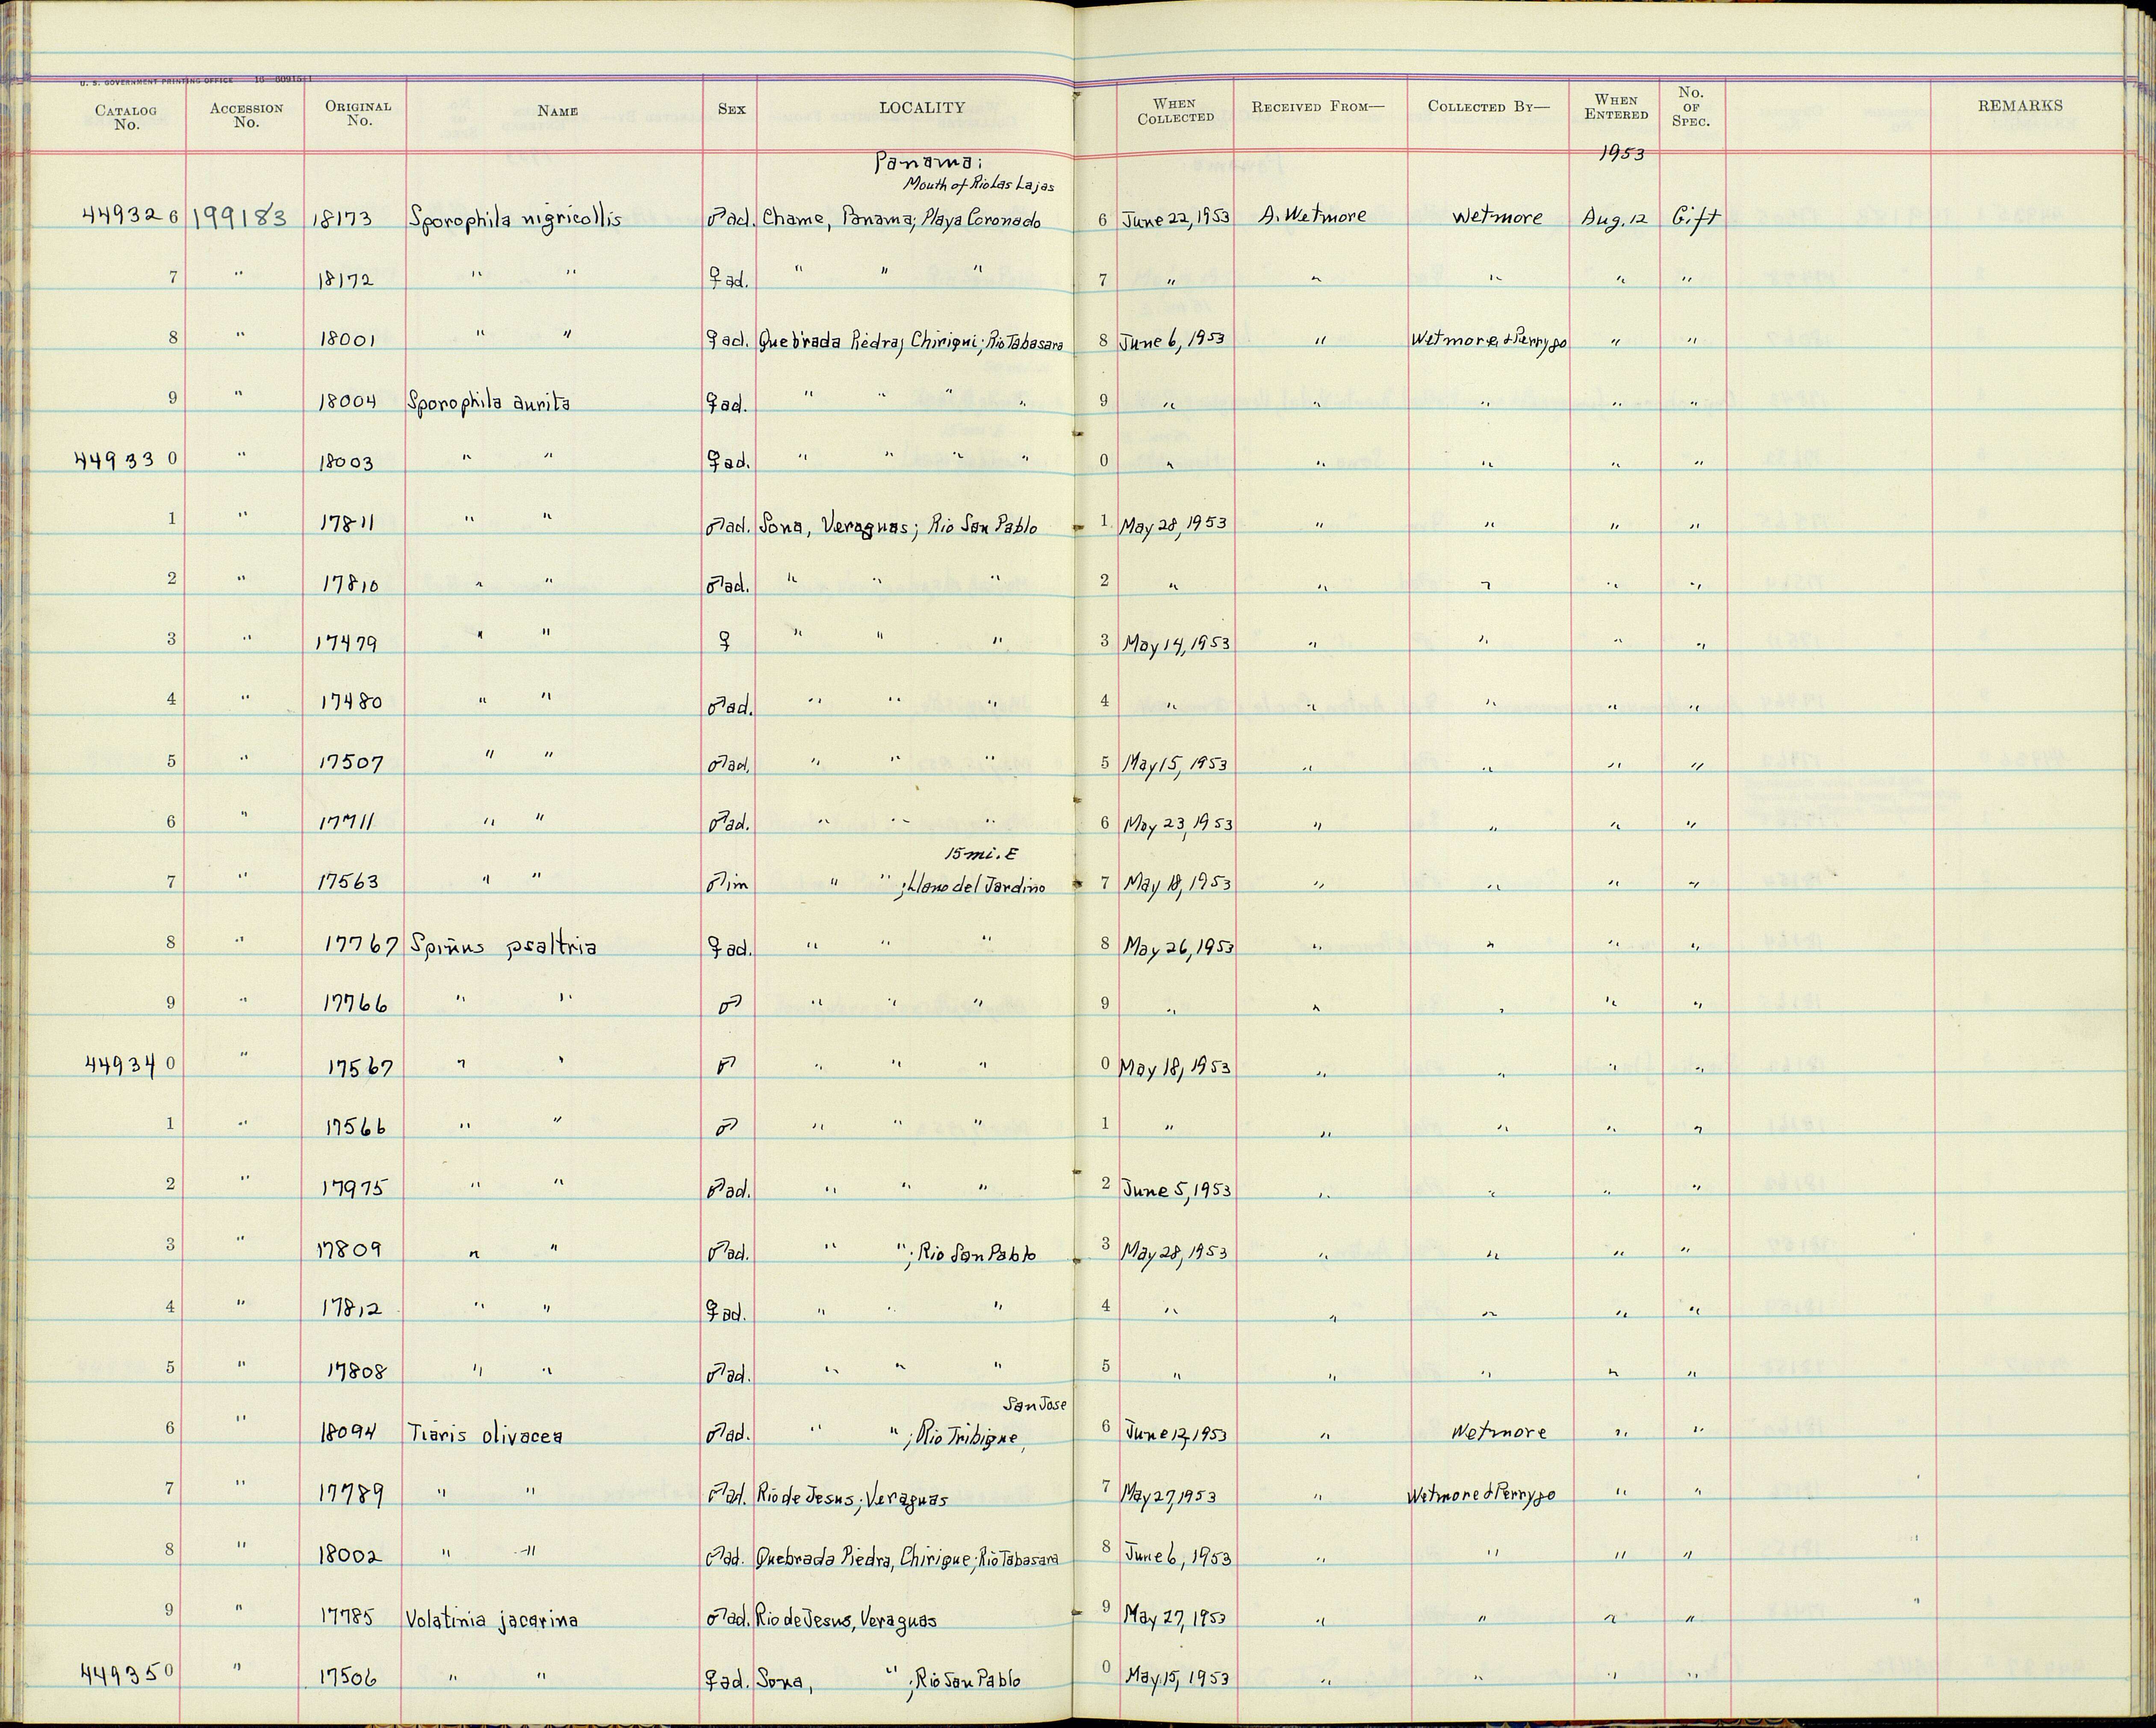 U. S. GOVERNMENT PRINTING OFFICE 16—60915-1
CATALOG No. ACCESSION No. ORIGINAL No. NAME SEX LOCALITY WHEN COLLECTED RECEIVED FROM— COLLECTED BY— WHEN ENTERED No. OF SPEC. REMARKS
Panama: 1953
Mouth of Rio Las Lajas
449326 199183 18173 Sporophila nigricollis ♂ ad. Chame, Panama; Playa Coronado 6 June 22, 1953 A. Wetmore Wetmore Aug. 12 Gift
7 " 18172 " " ♀ ad. " " " 7 " " " " "
8 " 18001 " " ♀ ad. Quebrada Piedra, Chiriqui; Rio Tabasara 8 June 6, 1953 " Wetmore & Perrygo " "
9 " 18004 Sporophila aurita ♀ ad. " " " " 9 " " " " "
449330 " 18003 " " ♀ ad. " " " " 0 " " " " "
1 " 17811 " " ♂ ad. Sona, Veraguas; Rio San Pablo 1 May 28, 1953 " " " "
2 " 17810 " " ♂ ad. " " " 2 " " " " "
3 " 17479 " " ♀ " " " 3 May 14, 1953 " " " "
4 " 17480 " " ♂ ad. " " " 4 " " " " "
5 " 17507 " " ♂ ad. " " " 5 May 15, 1953 " " " "
6 " 17711 " " ♂ ad. " " " 6 May 23, 1953 " " " "
15 mi. E
7 " 17563 " " ♂ im " " ; Llano del Jardino 7 May 18, 1953 " " " "
8 " 17767 Spinus psaltria ♀ ad. " " " 8 May 26, 1953 " " " "
9 " 17766 " " ♂ " " " 9 " " " " "
449340 " 17567 " " ♂ " " " 0 May 18, 1953 " " " "
1 " 17566 " " ♂ " " " 1 " " " " "
2 " 17975 " " ♂ ad. " " " 2 June 5, 1953 " " " "
3 " 17809 " " ♂ ad. " " ; Rio San Pablo 3 May 28, 1953 " " " "
4 " 17812 " " ♀ ad. " " " 4 " " " " "
5 " 17808 " " ♂ ad. " " " 5 " " " " "
San Jose
6 " 18094 Tiaris olivacea ♂ ad. " " ; Rio Tribique, 6 June 12, 1953 " Wetmore " "
7 " 17789 " " ♂ ad. Rio de Jesus; Veraguas 7 May 27, 1953 " Wetmore & Perrygo " "
8 " 18002 " " ♂ ad. Quebrada Piedra, Chirique; Rio Tabasara 8 June 6, 1953 " " " "
9 " 17785 Volatinia jacarina ♂ ad. Rio de Jesus, Veraguas 9 May 27, 1953 " " " "
449350 " 17506 " " ♀ ad. Sona, " ; Rio San Pablo 0 May 15, 1953 " " " "